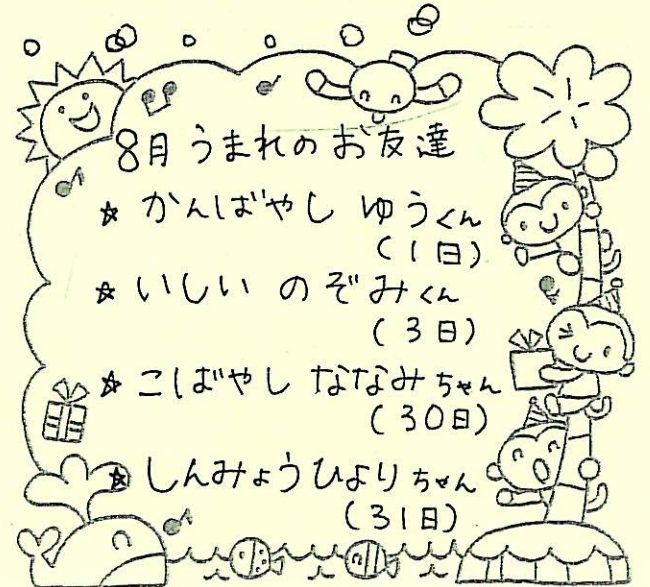 8月うまれのお友達
☆ かんばやし ゆうくん
(1日)
☆ いしい のぞみくん
(3日)
☆ こばやし ななみちゃん
(30日)
☆ しんみょうひよりちゃん
(31日)